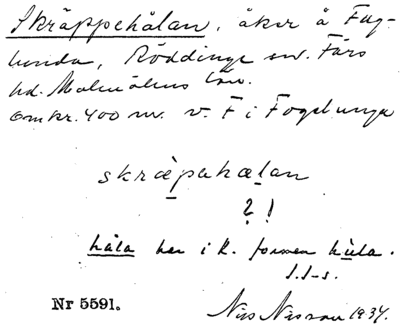 Skräppehålan, åker å Fug-
lunda, Röddinge sn. Färs
hd. Malmöhus län.
Omkr. 400 m. v. F i Fogelunga
skräpahælan
? !
håla här i R. formen hùla.
I.I-s.
Nr 5591.
Nils Nilsson 1934.